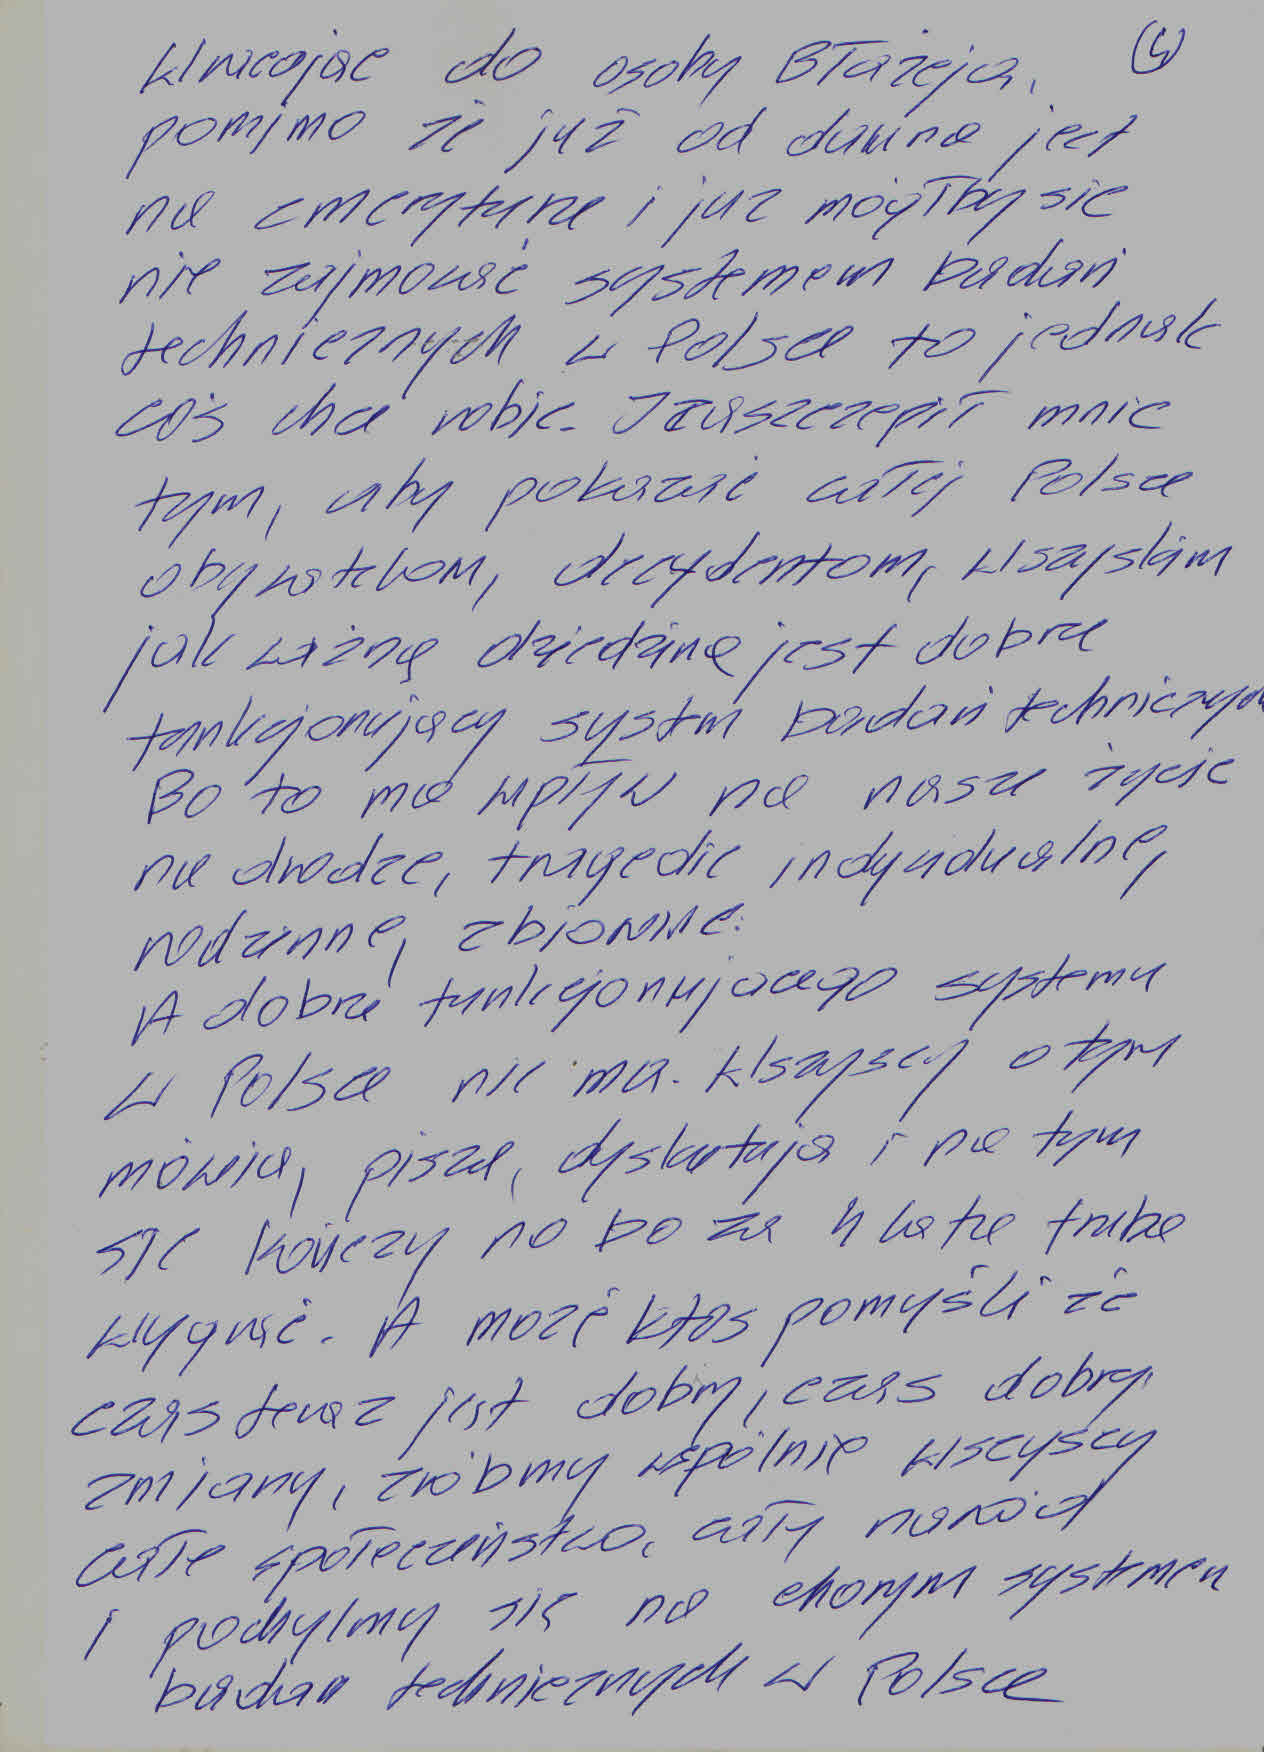 Wracając do osoby Błażeja, (4)
pomimo że już od dawna jest
na emeryturze i już mógłby sie
nie zajmować systemem badań
technicznych w Polsce to jednak
coś chce robic. Zaszczepił mnie
tym, aby pokazać całej Polsce
obywatelom, decydentom, wszyskim
jak ważną dziedziną jest dobrze
funkcjonujący system badań technicznych
Bo to ma wpływ na nasze życie
na drodze, tragedie indywidualne,
rodzinne, zbiorowe.
A dobrze funkcjonujacego systemu
w Polsce nie ma. Wszyscy o tym
mówia, pisza, dyskutują i na tym
się kończy no bo za 4 lata trzeba
wygrać. A może ktos pomyśli że
czas teraz jest dobry, czas dobrej
zmiany, zróbmy wspólnie wszyscy
całe społeczeństwo, cały naród
i pochylmy się na chorym systemem
badan technicznych w Polsce